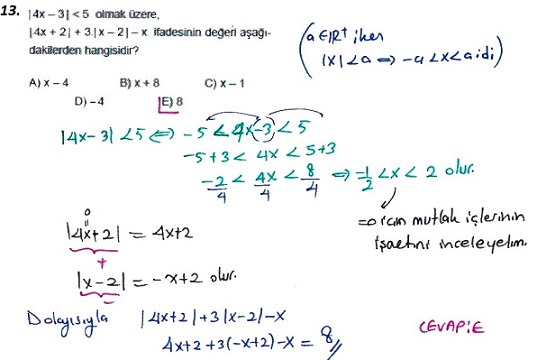 13. |4x − 3| < 5 olmak üzere,
|4x + 2| + 3.|x − 2| − x ifadesinin değeri aşağı-
dakilerden hangisidir?
A) x − 4 B) x + 8 C) x − 1
D) −4 E) 8
(a∈IR⁺ iken
|x| < a ⇒ −a < x < a idi)
|4x−3| < 5 ⇔ −5 < 4x−3 < 5
−5+3 < 4x < 5+3
−2/4 < 4x/4 < 8/4 ⇒ −1/2 < x < 2 olur.
=0 için mutlak içlerinin
işaretini inceleyelim.
0
|4x+2| = 4x+2
+
|x−2| = −x+2 olur.
−
Dolayısıyla |4x+2|+3|x−2|−x
4x+2+3(−x+2)−x = 8//
CEVAP:E